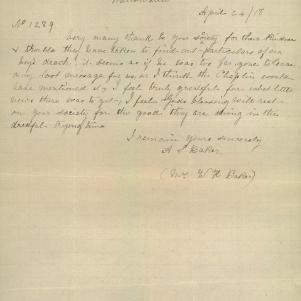 April 24/18
No 1289
Very many thanks to your Society for their kindness
& trouble they have taken to find out particulars of our
boy's death, it seems as if he was too far gone to leave
any last message for us, as I think the Chaplin would
have mentioned it, I feel truly grateful for what little
news there was to get, I feel Gods blessing will rest
on your society for the good they are doing in this
dreadful trying time
I remain yours sincerely
A S Baker
(Mrs W H Baker)